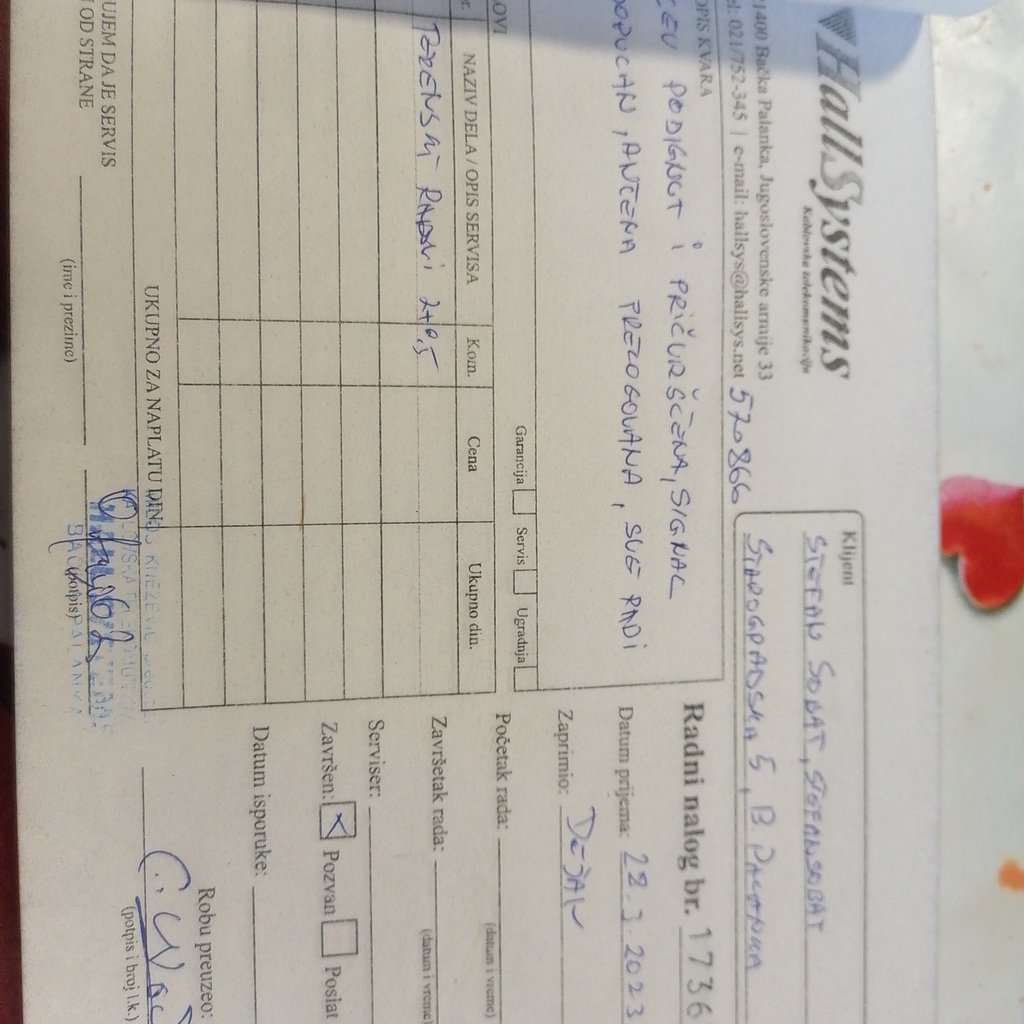 HallSystems
Kablovske telekomunikacije
21400 Bačka Palanka, Jugoslovenske armije 33
tel: 021/752-345 | e-mail: hallsys@hallsys.net
570866
Klijent
STEFAN SOBAT, STEFANSOBAT
STAROGRADSKA 5, B PALANKA
OPIS KVARA
PODIGNUT I PRIČVRŠĆENA, SIGNAL
ANTENA SVE RADI
Radni nalog br. 1736
Datum prijema: 22.3.2023
Zaprimio: DEJAN
Garancija Servis Ugradnja
Početak rada:
(datum i vreme)
Završetak rada:
(datum i vreme)
Serviser:
Završen: Pozvan Poslat
Datum isporuke:
NAZIV DELA / OPIS SERVISA Kom. Cena Ukupno din.
TERENSKI RADOVI 2+0.5
UKUPNO ZA NAPLATU DIN
UJEM DA JE SERVIS
OD STRANE
(ime i prezime)
(potpis)
BAČKA PALANKA
Robu preuzeo:
(potpis i broj l.k.)